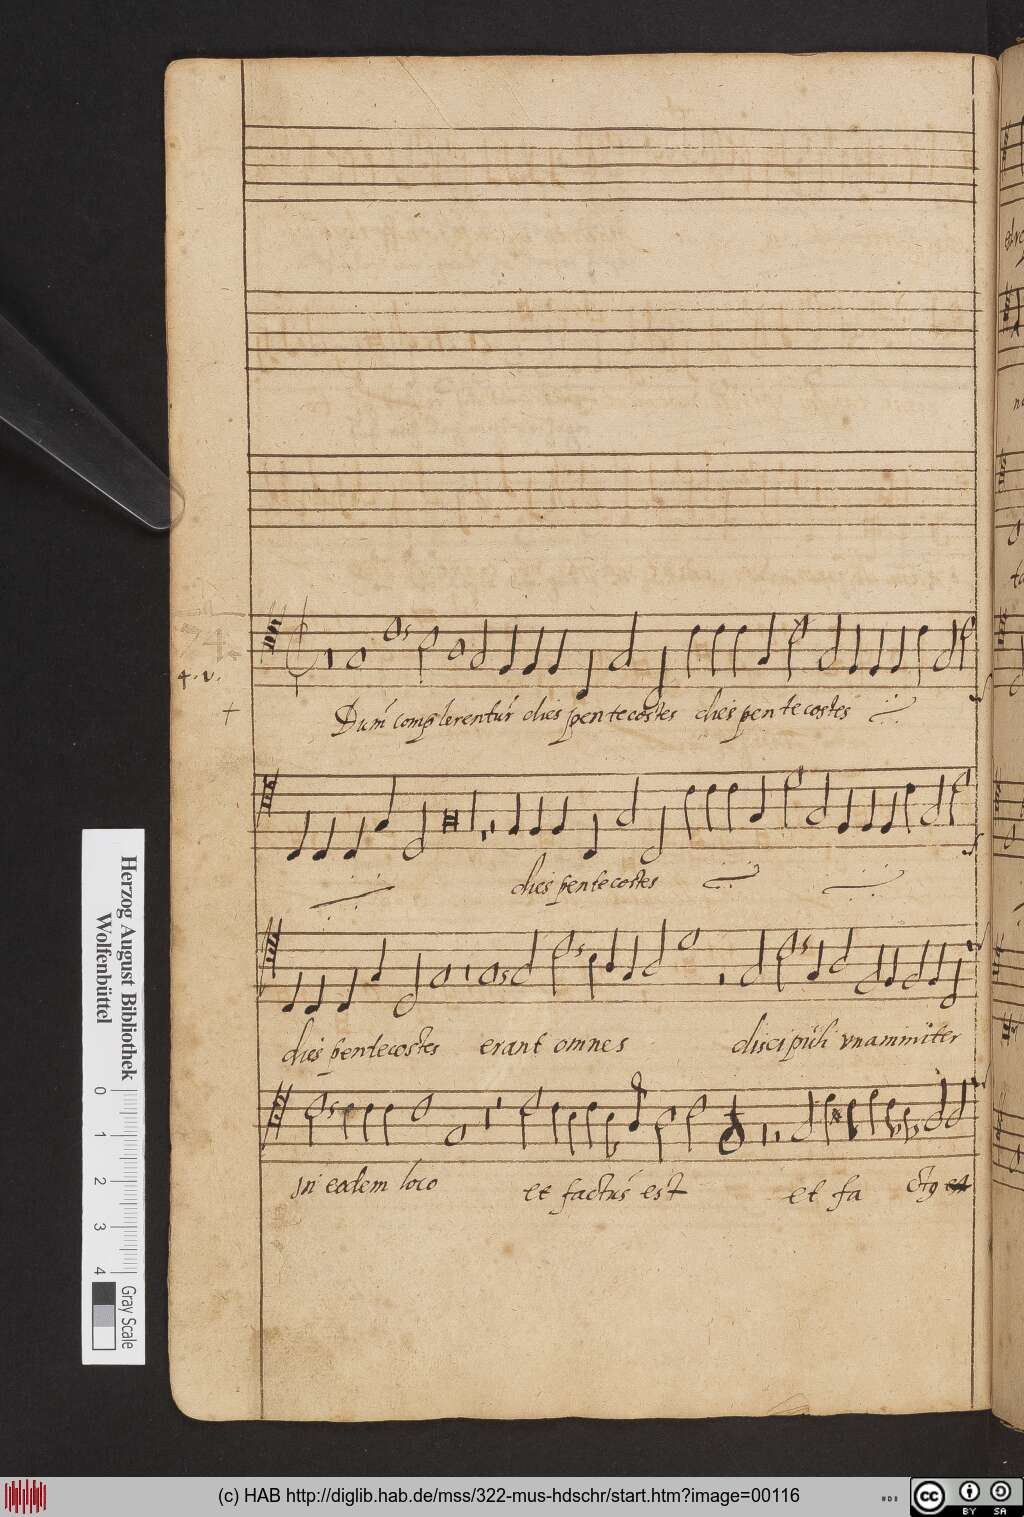 4. v.
Dum complerentur dies pentecostes dies pentecostes
dies pentecostes
dies pentecostes erant omnes discipuli vnanimiter
In eodem loco et factus est et fa ct9 est
Herzog August Bibliothek
Wolfenbüttel
0 1 2 3 4
Gray Scale
(c) HAB http://diglib.hab.de/mss/322-mus-hdschr/start.htm?image=00116
cc BY SA